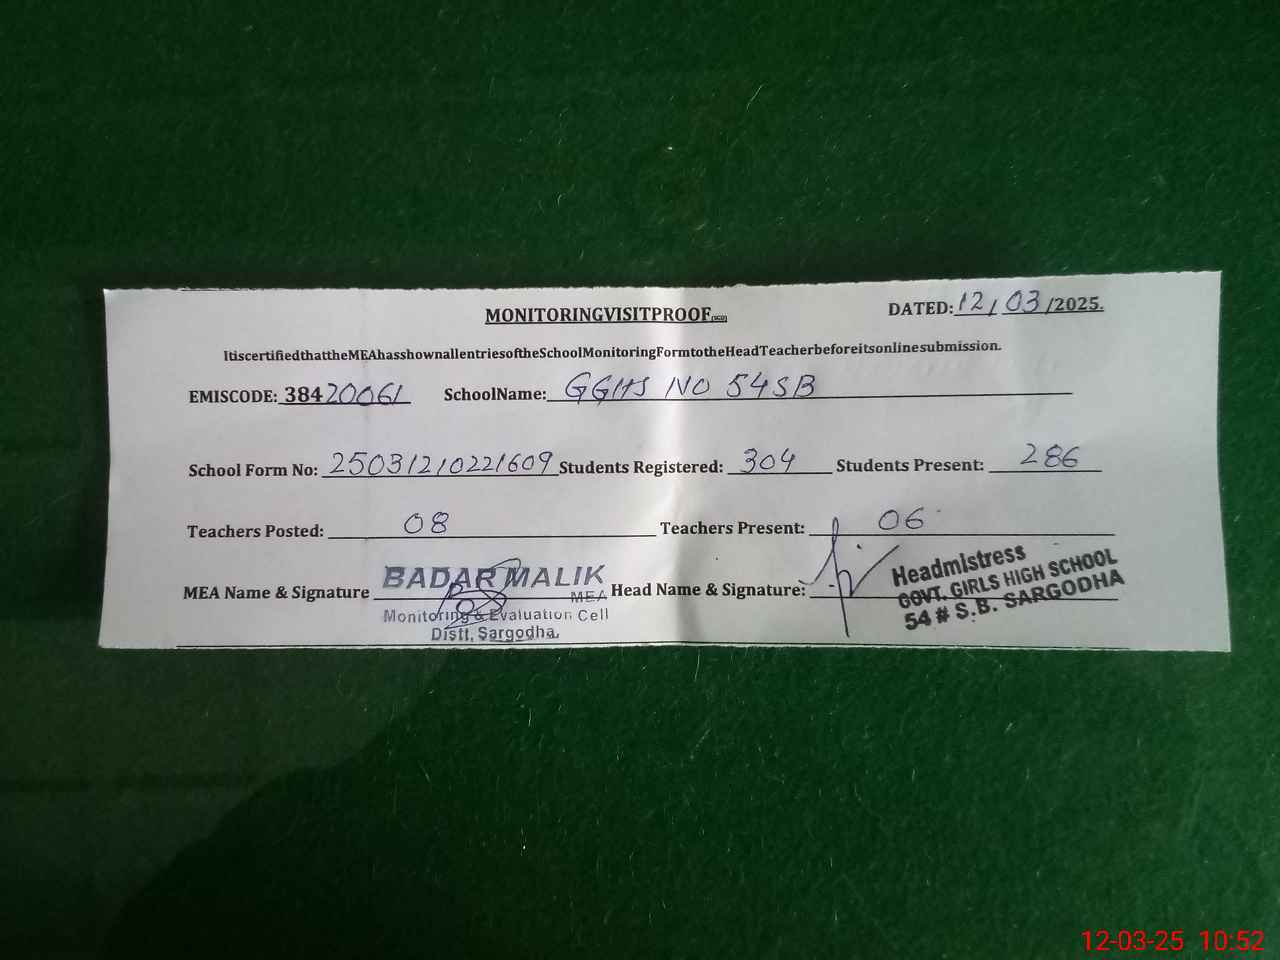 MONITORINGVISITPROOF
DATED: 12/03/2025.
ItiscertifiedthattheMEAhasshownallentriesoftheSchoolMonitoringFormtotheHeadTeacherbeforeitsonlinesubmission.
EMISCODE: 38420061 SchoolName: GGHS NO 54SB
School Form No: 25031210221609 Students Registered: 304 Students Present: 286
Teachers Posted: 08 Teachers Present: 06
MEA Name & Signature BADAR MALIK Head Name & Signature:
MEA
Monitoring & Evaluation Cell
Distt, Sargodha.
Headmistress
GOVT. GIRLS HIGH SCHOOL
54 # S.B. SARGODHA
12-03-25 10:52